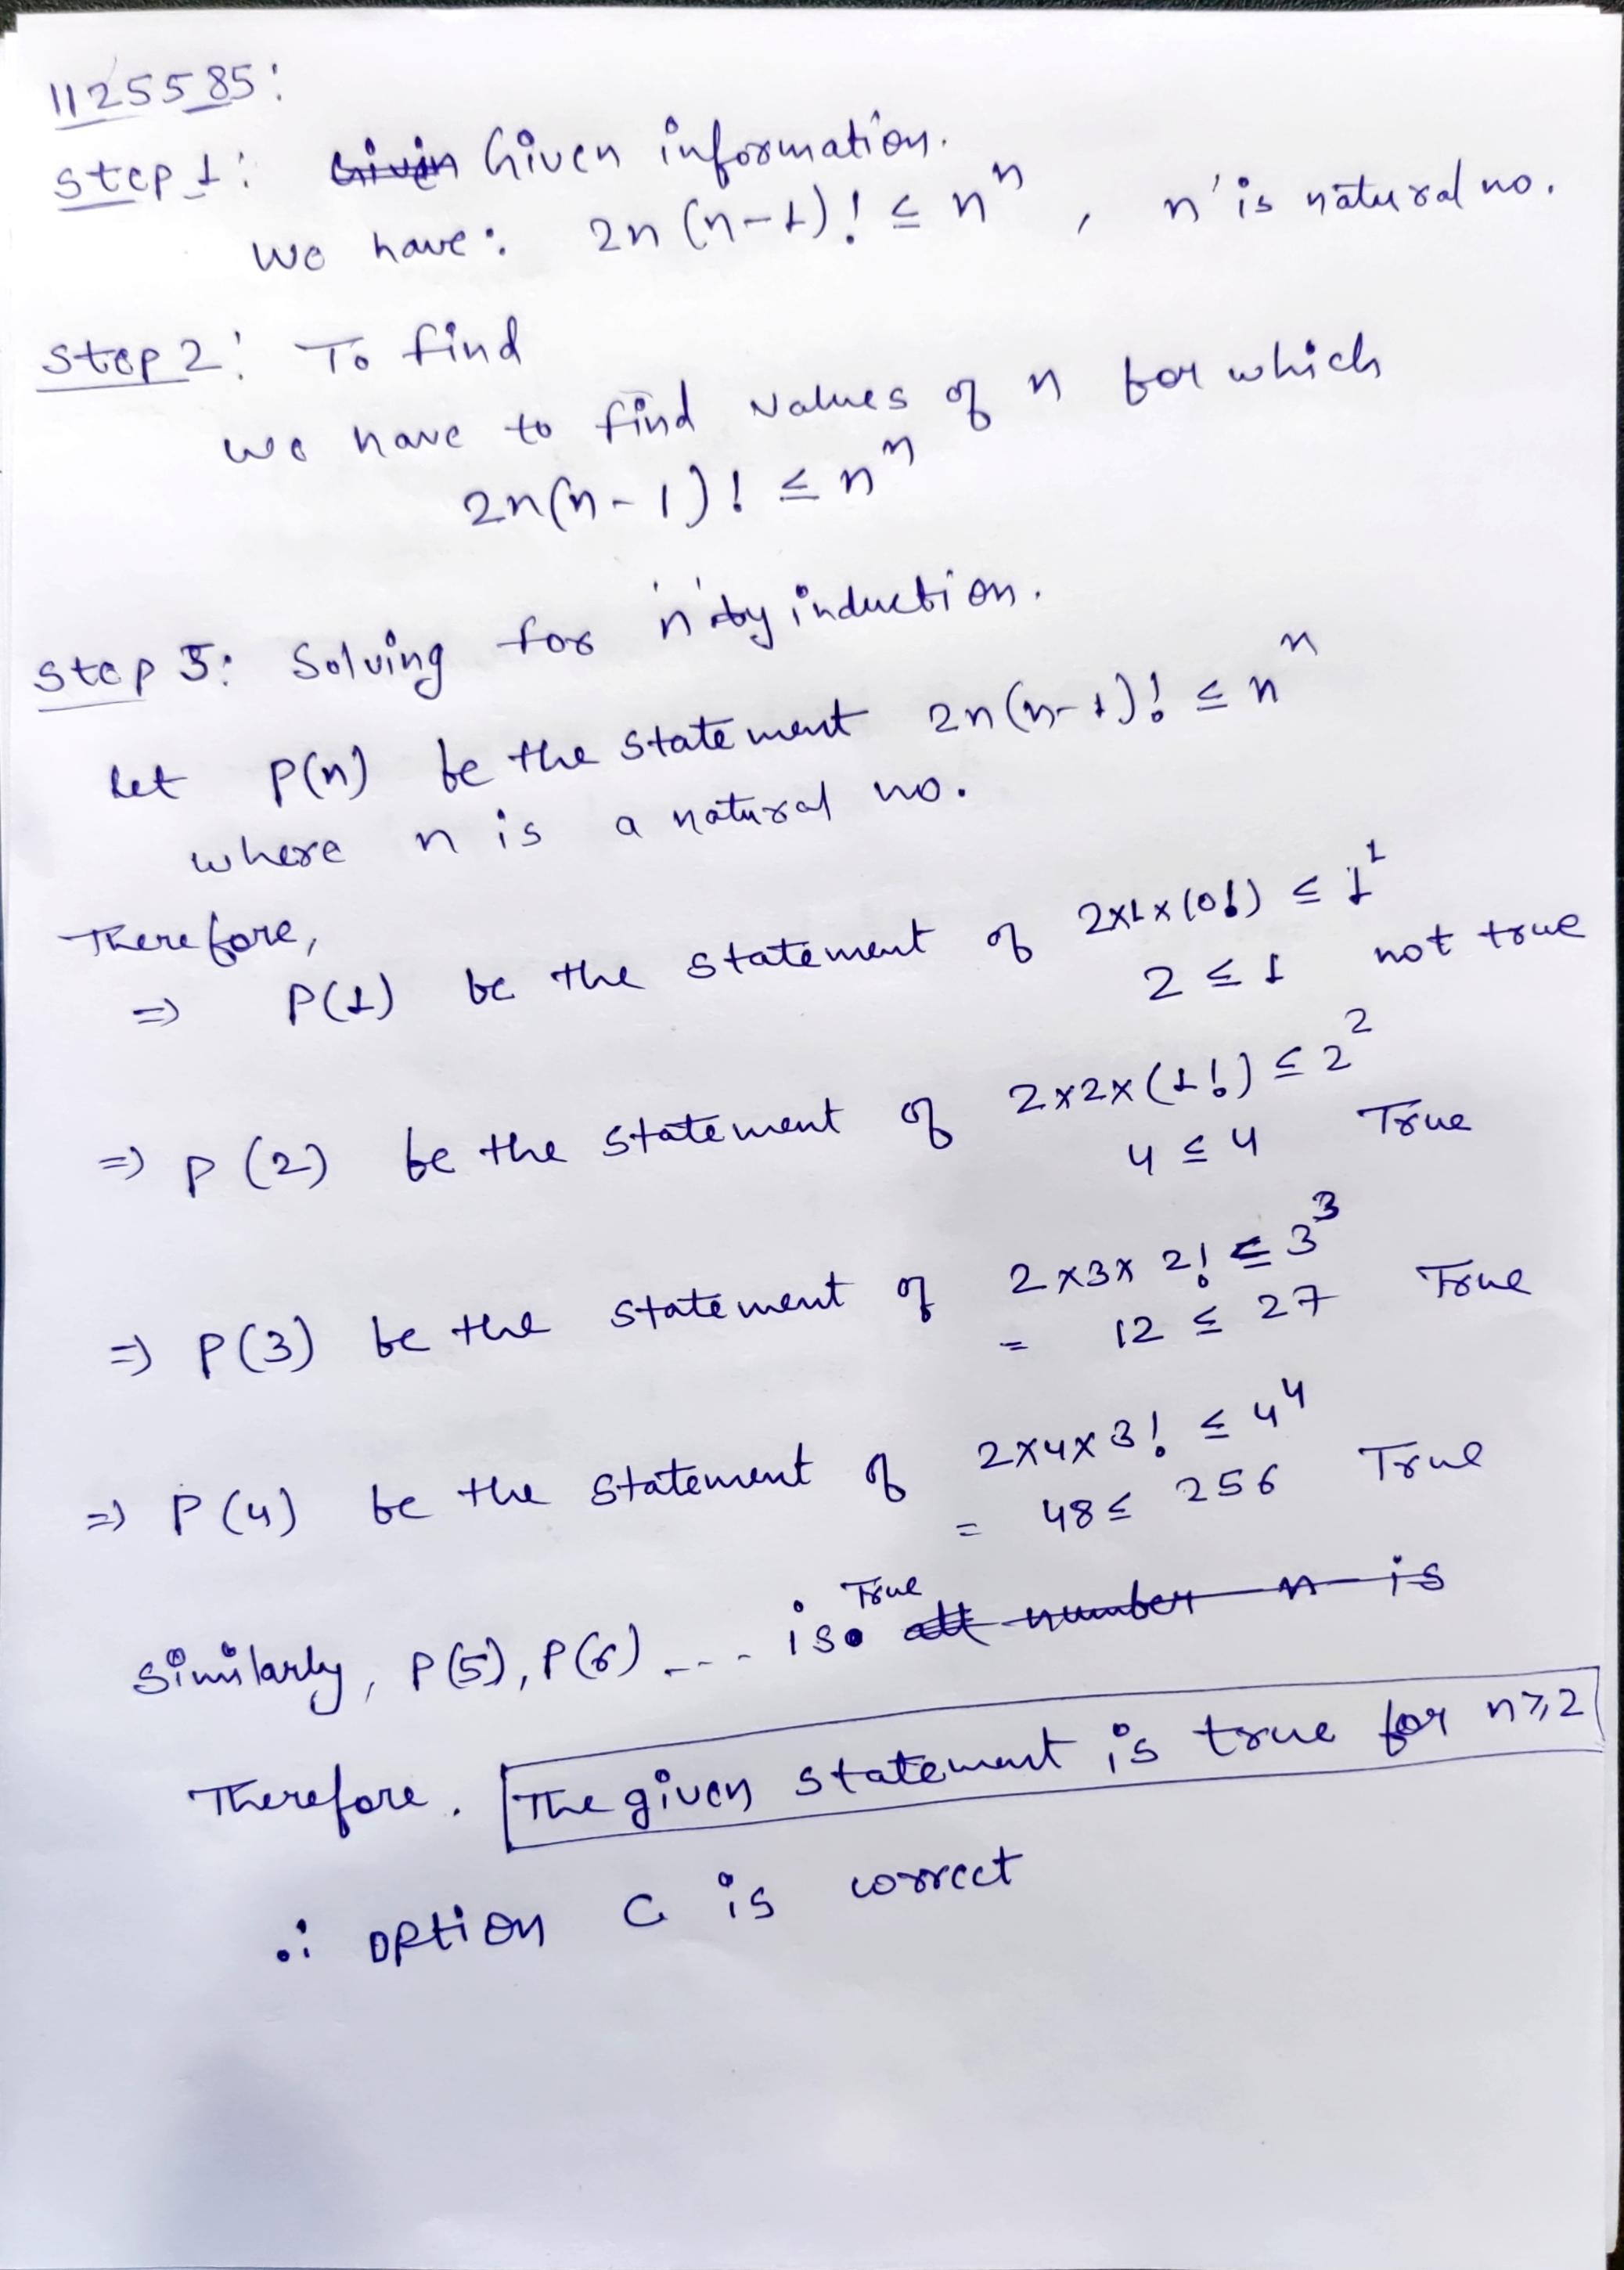 1125585:
Step 1: Given Given information.
We have: 2n(n-1)! ≤ nⁿ, n' is natural no.
Step 2: To find
We have to find values of n for which
2n(n-1)! ≤ nⁿ
Step 3: Solving for 'n' by induction.
Let P(n) be the statement 2n(n-1)! ≤ nⁿ
where n is a natural no.
Therefore,
⇒ P(1) be the statement of 2×1×(0!) ≤ 1¹
2 ≤ 1 not true
⇒ P(2) be the statement of 2×2×(1!) ≤ 2²
4 ≤ 4 True
⇒ P(3) be the statement of 2×3×2! ≤ 3³
= 12 ≤ 27 True
⇒ P(4) be the statement of 2×4×3! ≤ 4⁴
= 48 ≤ 256 True
Similarly, P(5), P(6) --- is True all number n is
Therefore. The given statement is true for n ≥ 2
∴ option C is correct